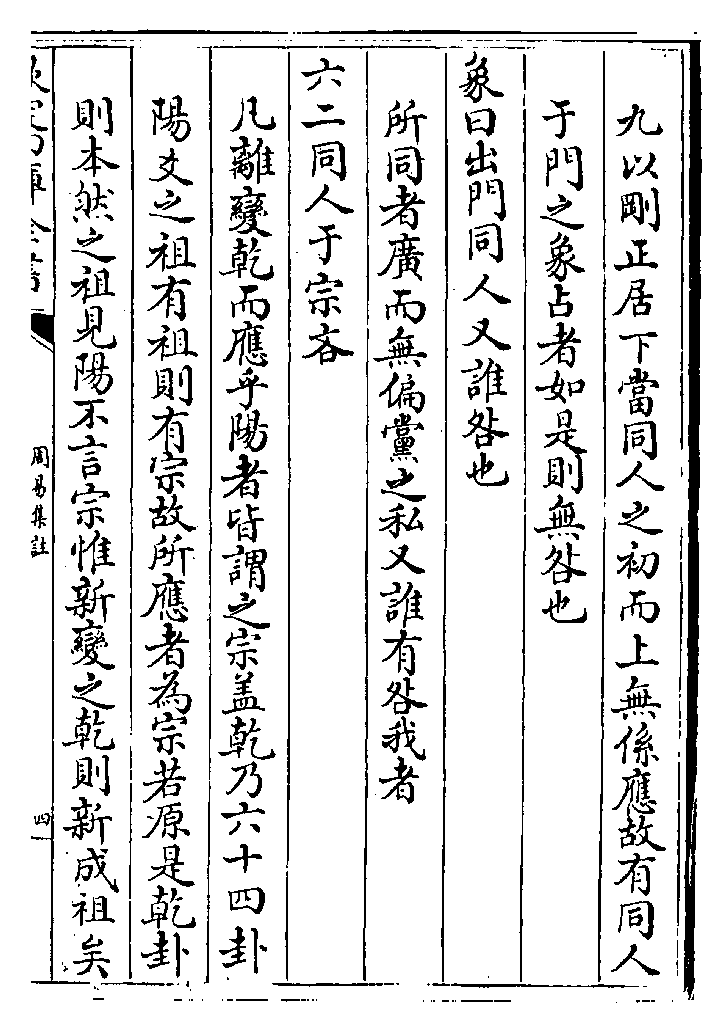 九以剛正居下當同人之初而上無係應故有同人
于門之象占者如是則無咎也
象曰出門同人又誰咎也
所同者廣而無偏黨之私又誰有咎我者
六二同人于宗吝
凡離變乾而應乎陽者皆謂之宗盖乾乃六十四卦
陽爻之祖有祖則有宗故所應者為宗若原是乾卦
則本然之祖見陽不言宗惟新變之乾則新成祖矣
欽定四庫全書
周易集註
四